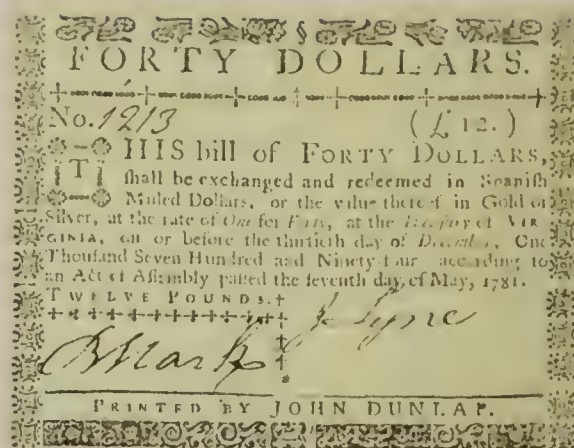 FORTY DOLLARS.
No. 1213 (£ 12.)
THIS bill of FORTY DOLLARS,
ſhall be exchanged and redeemed in Spaniſh
Milled Dollars, or the value thereof in Gold or
Silver, at the rate of One for Forty, at the Treaſury of VIR-
GINIA, on or before the thirtieth day of December, One
Thouſand Seven Hundred and Ninety-four according to
an Act of Aſſembly paſſed the ſeventh day, of May, 1781.
TWELVE POUNDS.
J. Lyne
B Stark
PRINTED BY JOHN DUNLAP.